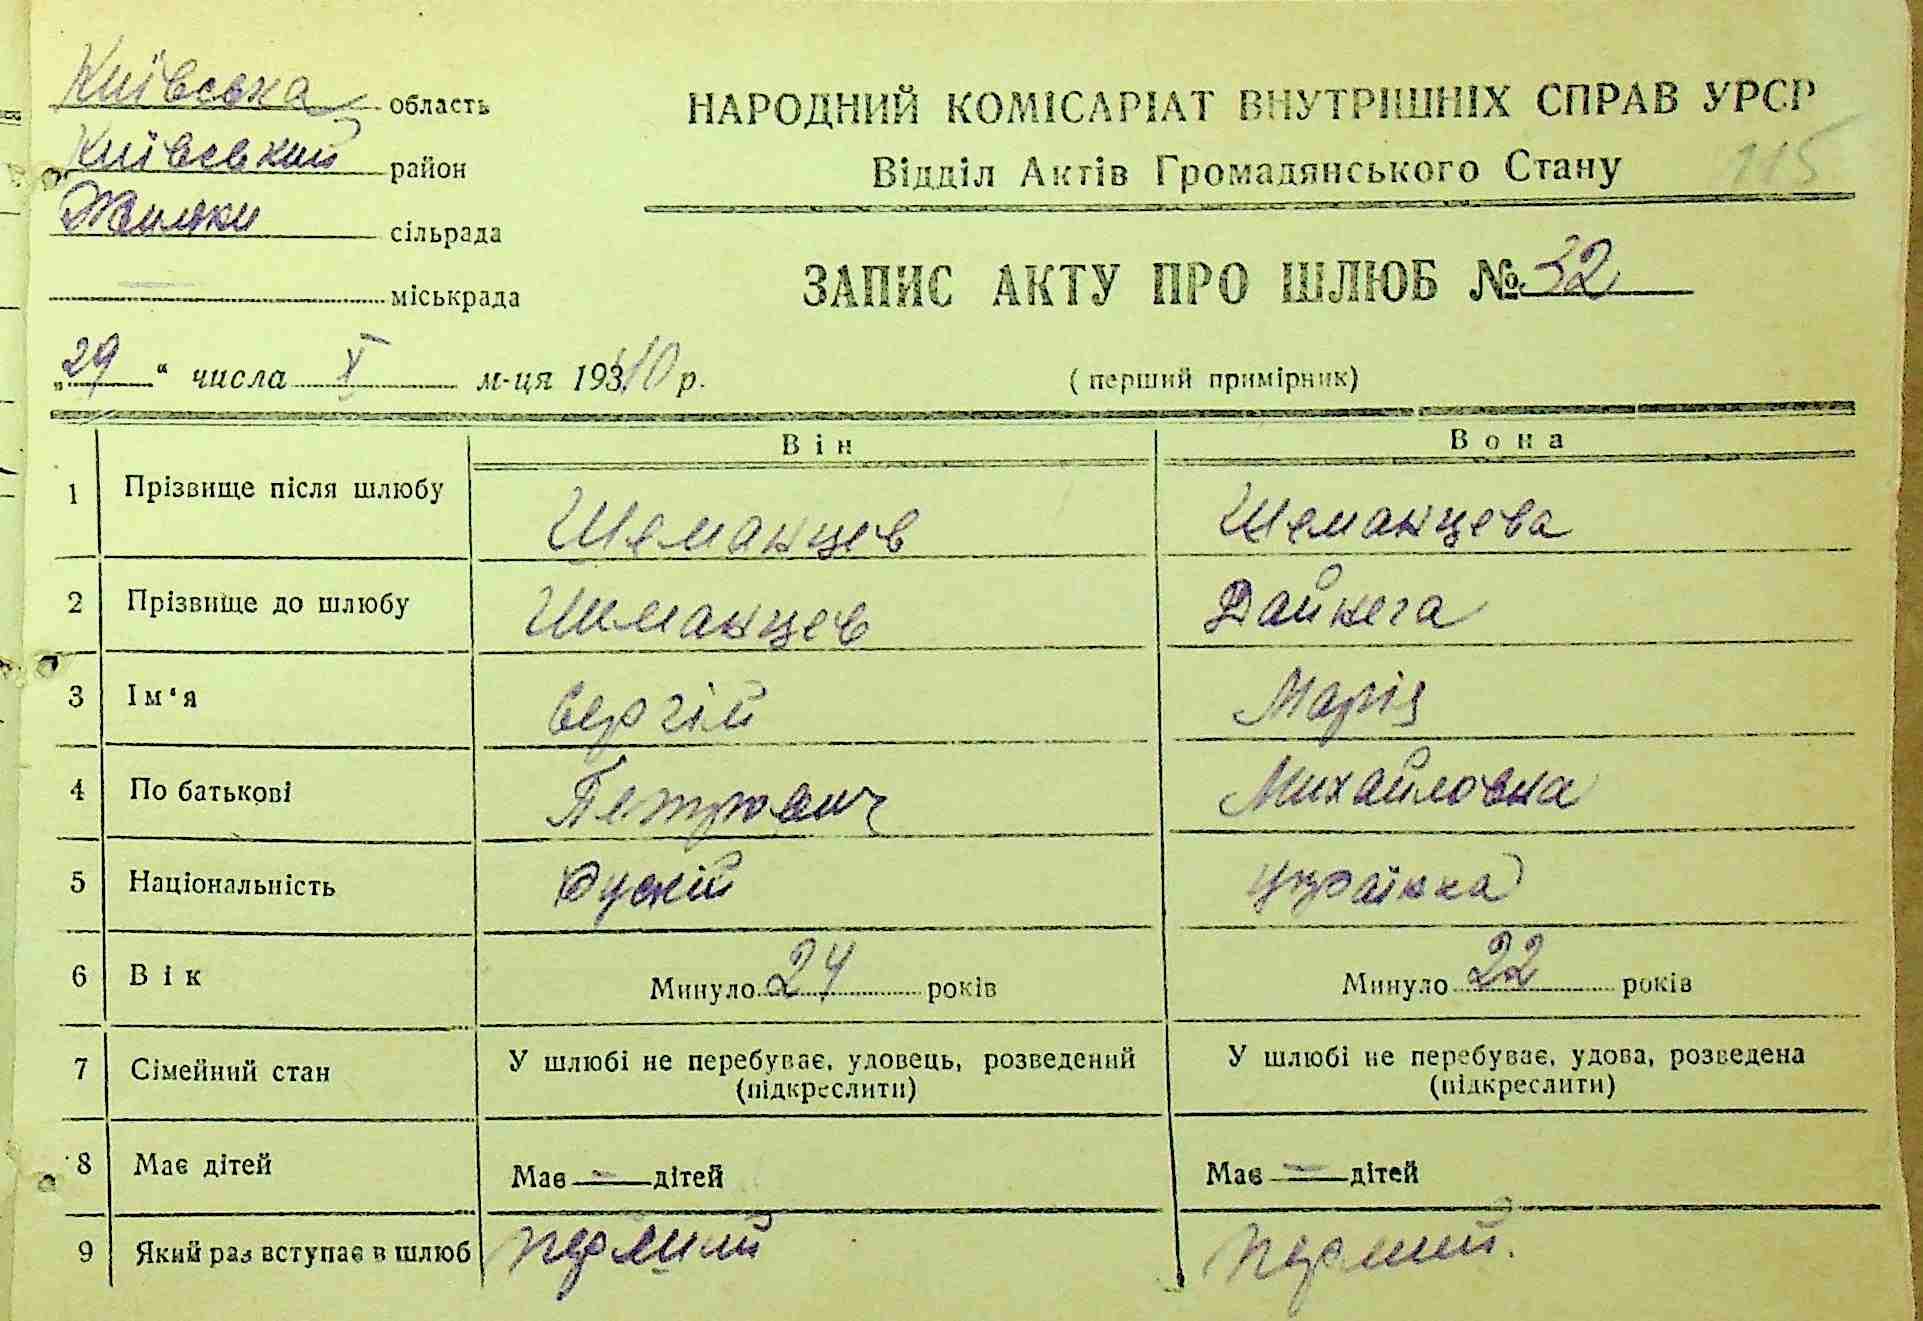 Київська область
Київський район
Жиляни сільрада
міськрада
НАРОДНИЙ КОМІСАРІАТ ВНУТРІШНІХ СПРАВ УРСР
Відділ Актів Громадянського Стану
115
ЗАПИС АКТУ ПРО ШЛЮБ № 32
„29“ числа X м-ця 19340 р.
(перший примірник)
Він Вона
1 Прізвище після шлюбу Шеманцев Шеманцева
2 Прізвище до шлюбу Шиманцев Дайнега
3 Ім‘я Сергій Марія
4 По батькові Петрович Михайловна
5 Національність Рускій Українка
6 Вік Минуло 24 років Минуло 22 років
7 Сімейний стан У шлюбі не перебуває, удовець, розведений У шлюбі не перебуває, удова, розведена
(підкреслити) (підкреслити)
8 Має дітей Має — дітей Має — дітей
9 Який раз вступає в шлюб перший перший.